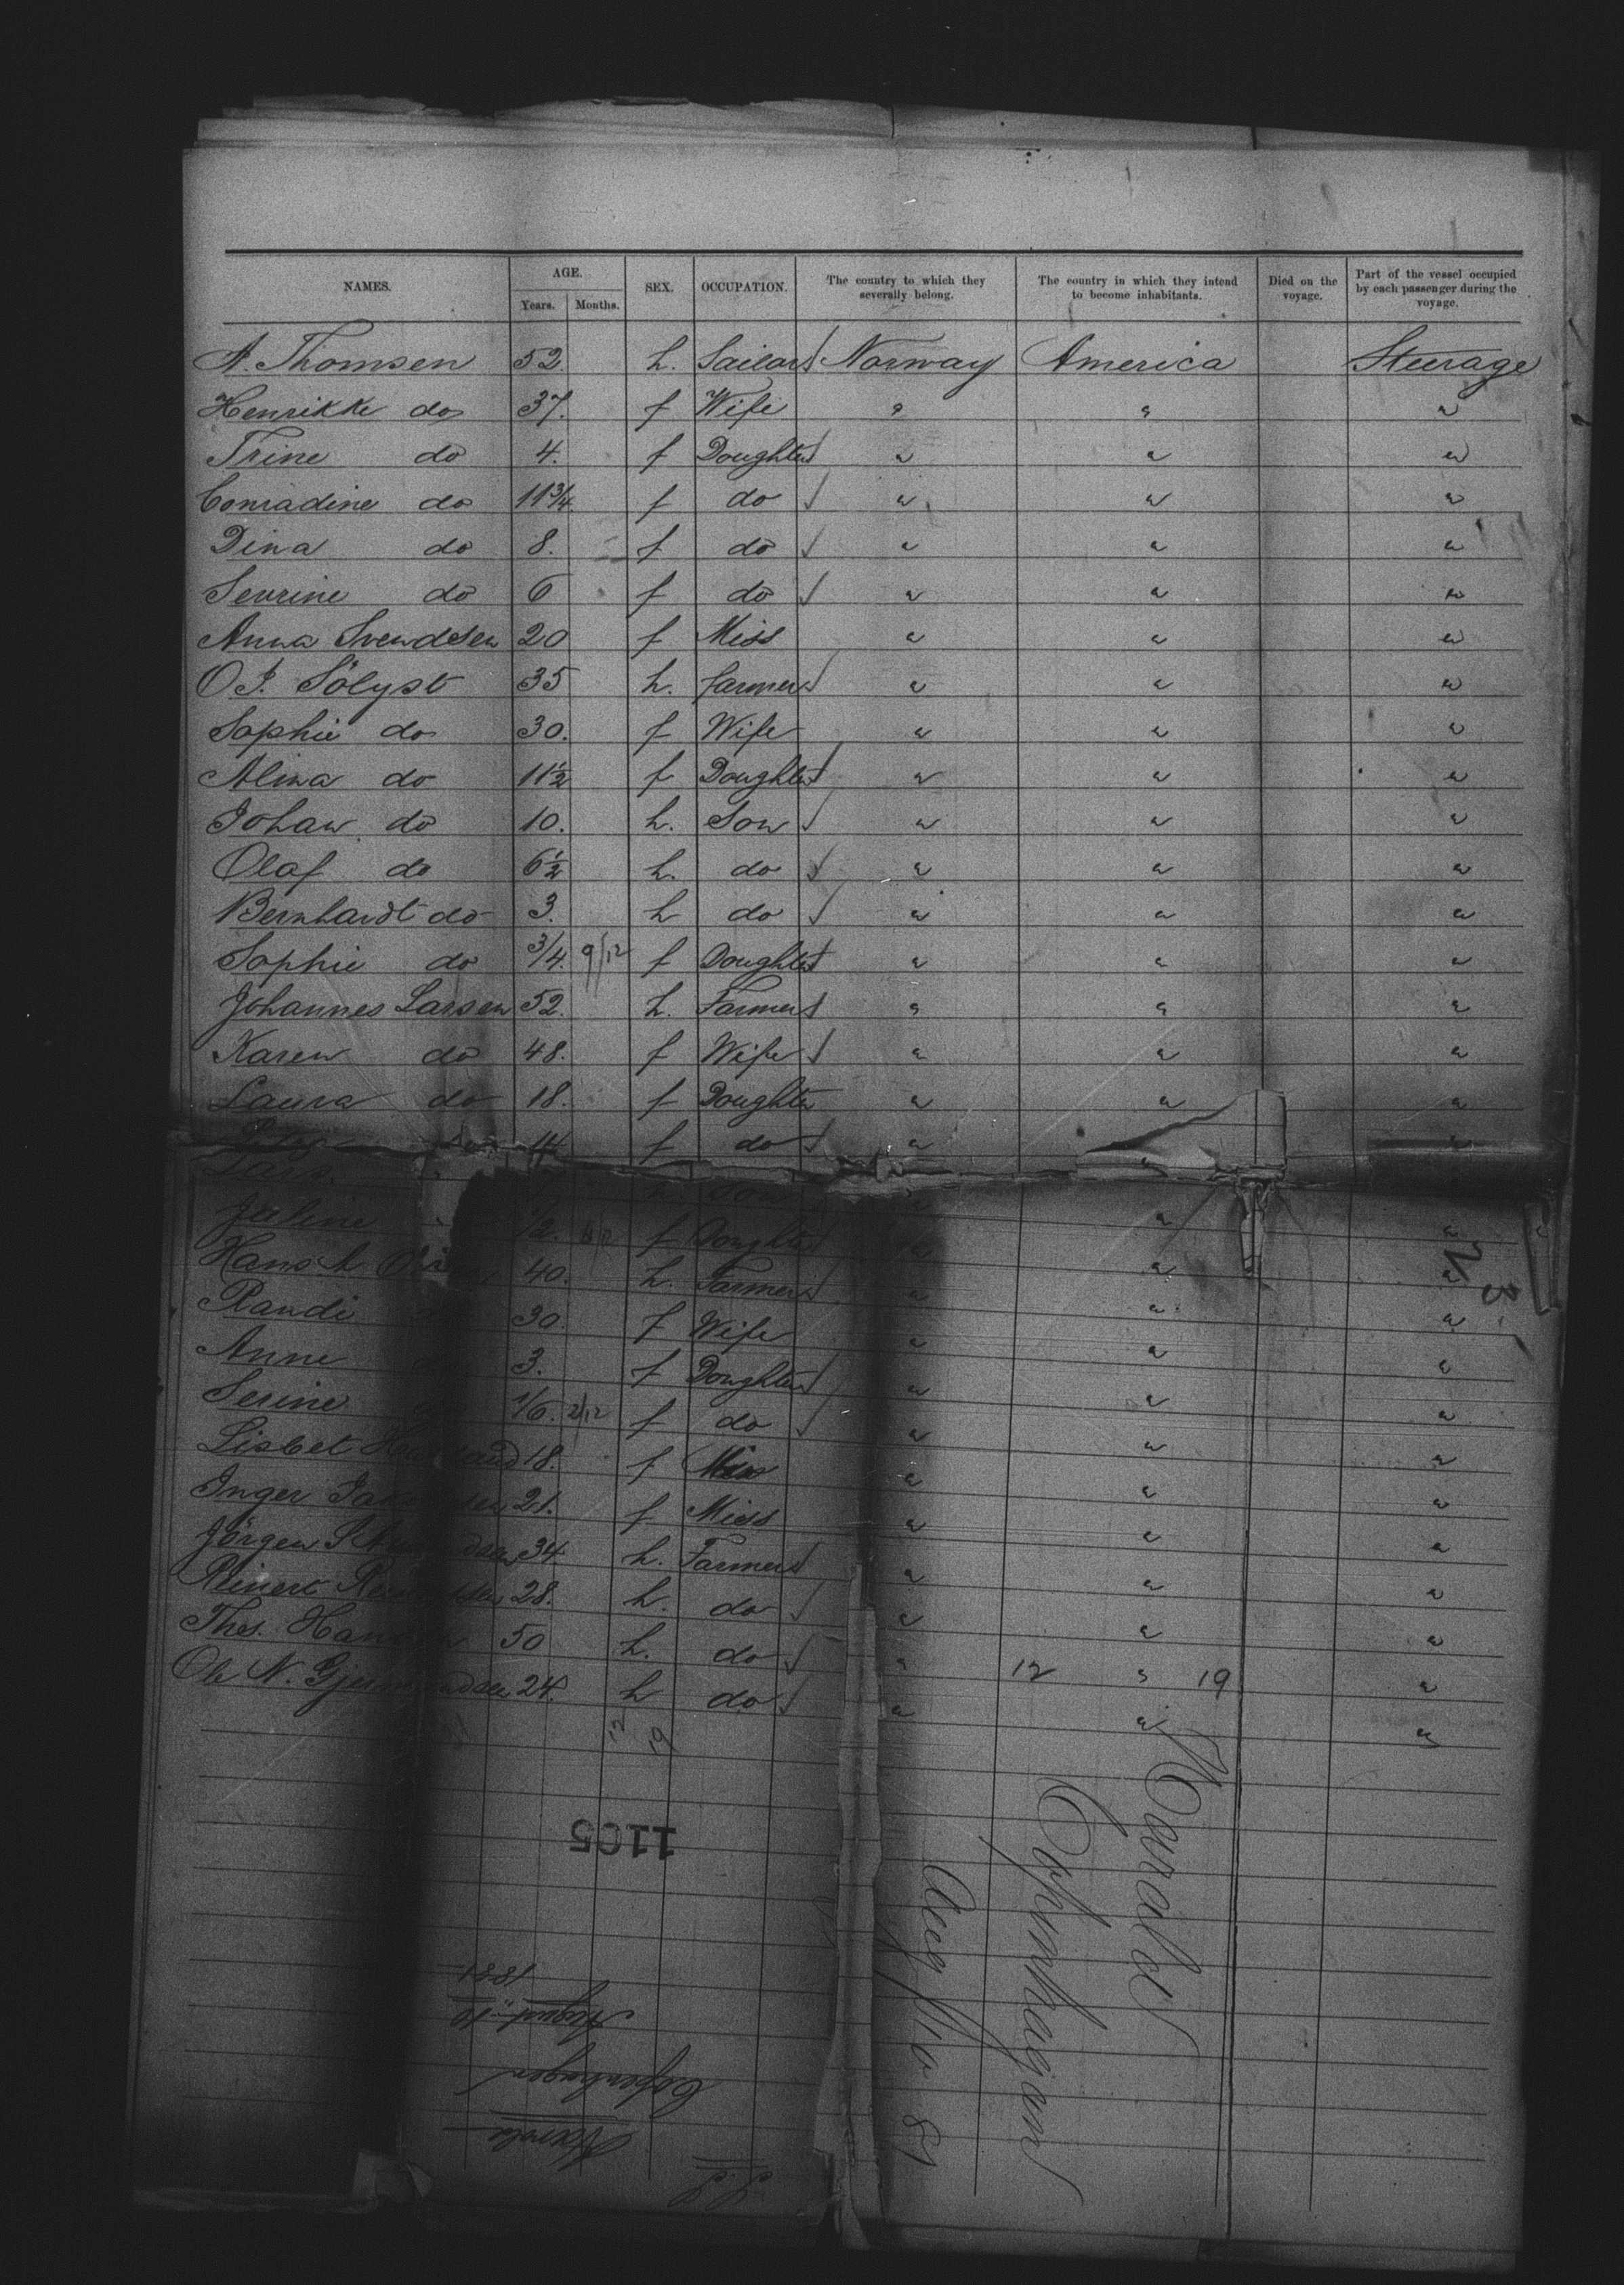 NAMES. AGE. SEX. OCCUPATION. The country to which they severally belong. The country in which they intend to become inhabitants. Died on the voyage. Part of the vessel occupied by each passenger during the voyage.
Years. Months.
A. Thomsen 52. h. Sailor Norway America Steerage
Henrikke do 37. f Wife " " "
Trine do 4. f Doughter " " "
Conradine do 11 3/4 f do " " "
Dina do 8. f do " " "
Sevrine do 6 f do " " "
Anna Svendsen 20 f Miss " " "
O J. Sölyst 35 h. farmer " " "
Sophie do 30. f Wife " " "
Alina do 11 1/2 f Doughter " " "
Johan do 10. h. Son " " "
Olaf do 6 1/2 h. do " " "
Bernhardt do 3. h do " " "
Sophie do 3/4. 9/12 f Doughter " " "
Johannes Larsen 52. h. Farmer " " "
Karen do 48. f Wife " " "
Laura do 18. f Doughter " " "
14 f do " " "
h Son " " "
Juline 1/2. 6/12 f Doughter " " "
Hans 40. h. Farmer " " "
Randi 30. f Wife " " "
Anne 3. f Doughter " " "
Serine 1/6. 2/12 f do " " "
Lisbet 18. f Miss " " "
Inger 21. f Miss " " "
Jörgen 34. h. Farmer " " "
Reinert 28. h. do " " "
Thos. 50 h. do " " "
Ole N. 24. h do " " "
12 19
12 19
1105
Copenhagen
Aug 10 81
Copenhagen
August 10
1881